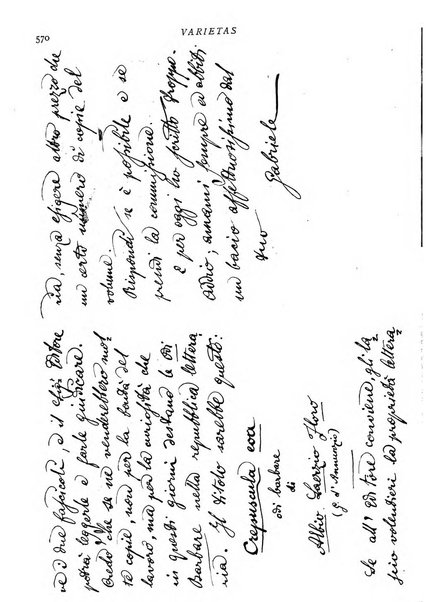 570
VARIETAS
ve i due fascicoli, e il Editore
potrà leggerle e farle giudicare.
Credo che se ne venderebbero mol-
te copie, non per la bontà del
lavoro, ma per la curiosità che
in questi giorni destano le Odi
Barbare nella repubblica lettera-
ria. Il titolo sarebbe questo:
Crepuscula eoa
odi barbare
di
Albio Laerzio Floro
(G. d'Annunzio)
Se all'Editore conviene, gli la-
scio volentieri la proprietà lettera-
ria, senza esigere altro prezzo che
un certo numero di copie del
volume.
Rispondi se è possibile e se
prendi la commissione.
E per oggi ho scritto troppo.
Addio; amami sempre ed abbiti
un bacio affettuosissimo dal
tuo
Gabriele